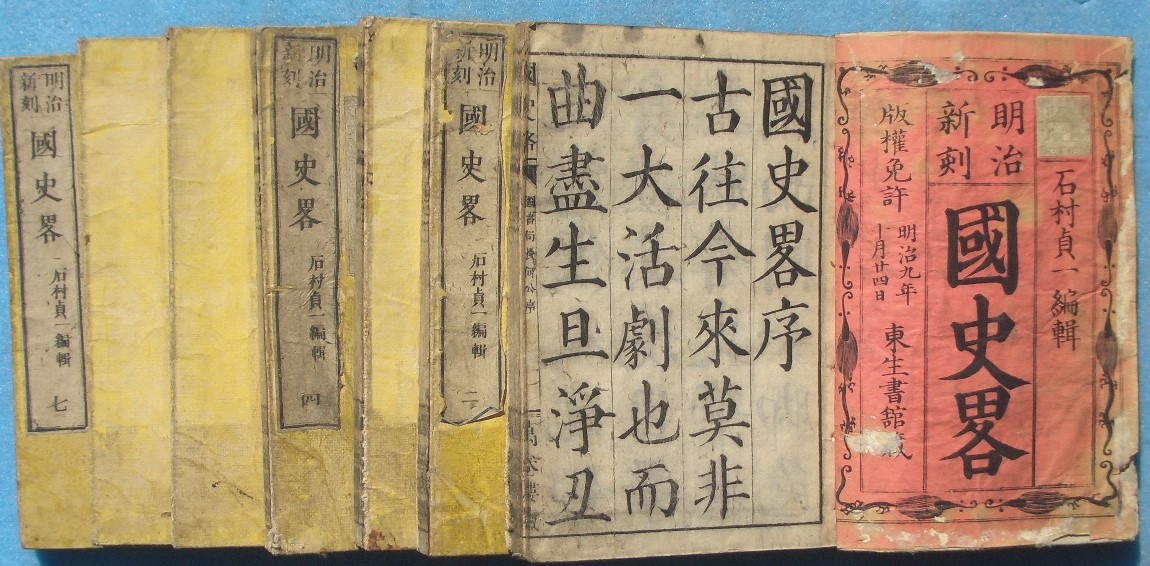 石村貞一編輯
明治
新刻
國史畧
版權免許
明治九年
十月廿四日
東生書館
國史畧序
古往今來莫非
一大活劇也而
曲盡生旦淨丑
國史畧
明治
新刻
國史畧
石村貞一編輯
二
明治
新刻
國史畧
石村貞一編輯
四
明治
新刻
國史畧
石村貞一編輯
七